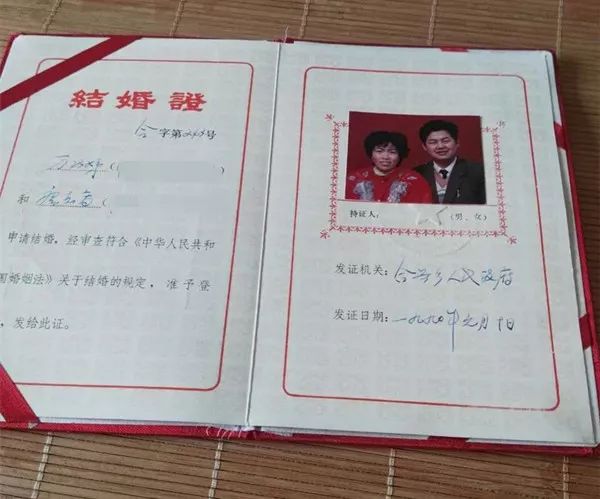 結婚證
合字第 号
和
申请结婚，经审查符合《中华人民共和
国婚姻法》关于结婚的规定，准予登
，发给此证。
持证人： （男、女）
发证机关： 人民政府
发证日期：一九九0年元月 日